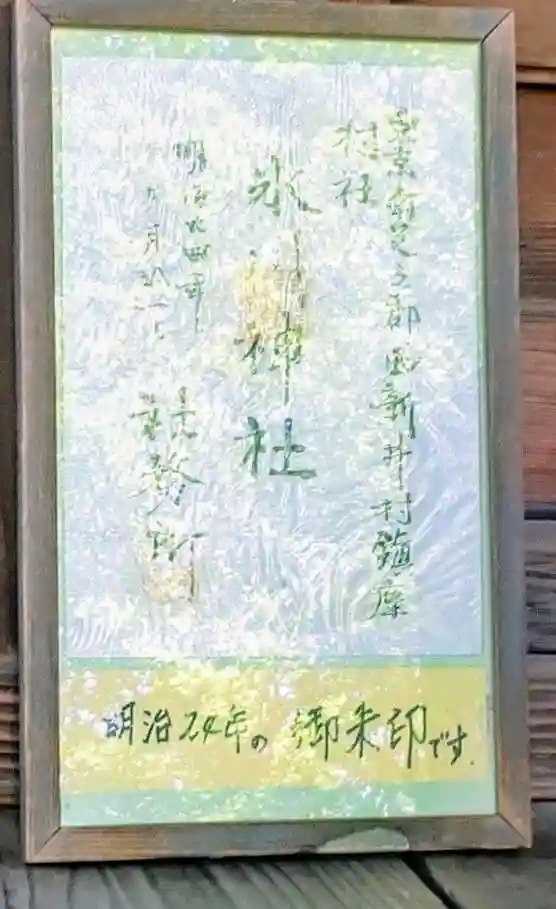 東京府足立郡西新井村鎮座
村社
氷川神社
明治廿四年
月
社務所
明治24年の 御朱印です.